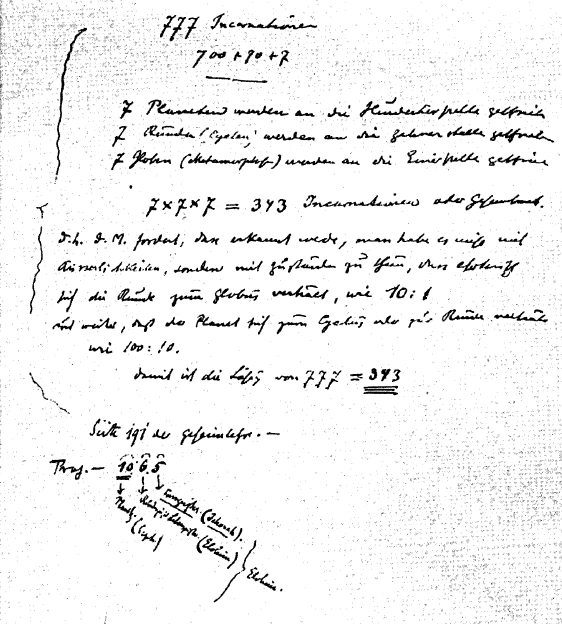 777 Incarnationen
700 + 70 + 7
7 Planeten werden an die Hunderterstelle geschrieben
7 Runden (Cyclen) werden an die Zehnerstelle geschrieben
7 Globen (Metamorphosen) werden an die Einerstelle geschrieben
7 x 7 x 7 = 343 Incarnationen oder
d.h. d. M. fordert, dass erkannt werde, man habe es nicht mit
Äusserlichkeiten, sondern mit Zuständen zu thun, dass esoterisch
sich die Runde zum Globus verhält, wie 10:1
und weiter, daß der Planet sich zum Cyclus oder zur Runde verhält
wie 100:10.
damit ist die von 777 = 343
Seite 191 der Geheimlehre. —
10 6 5
(Jehovah).
(Elohim)
Elohim.